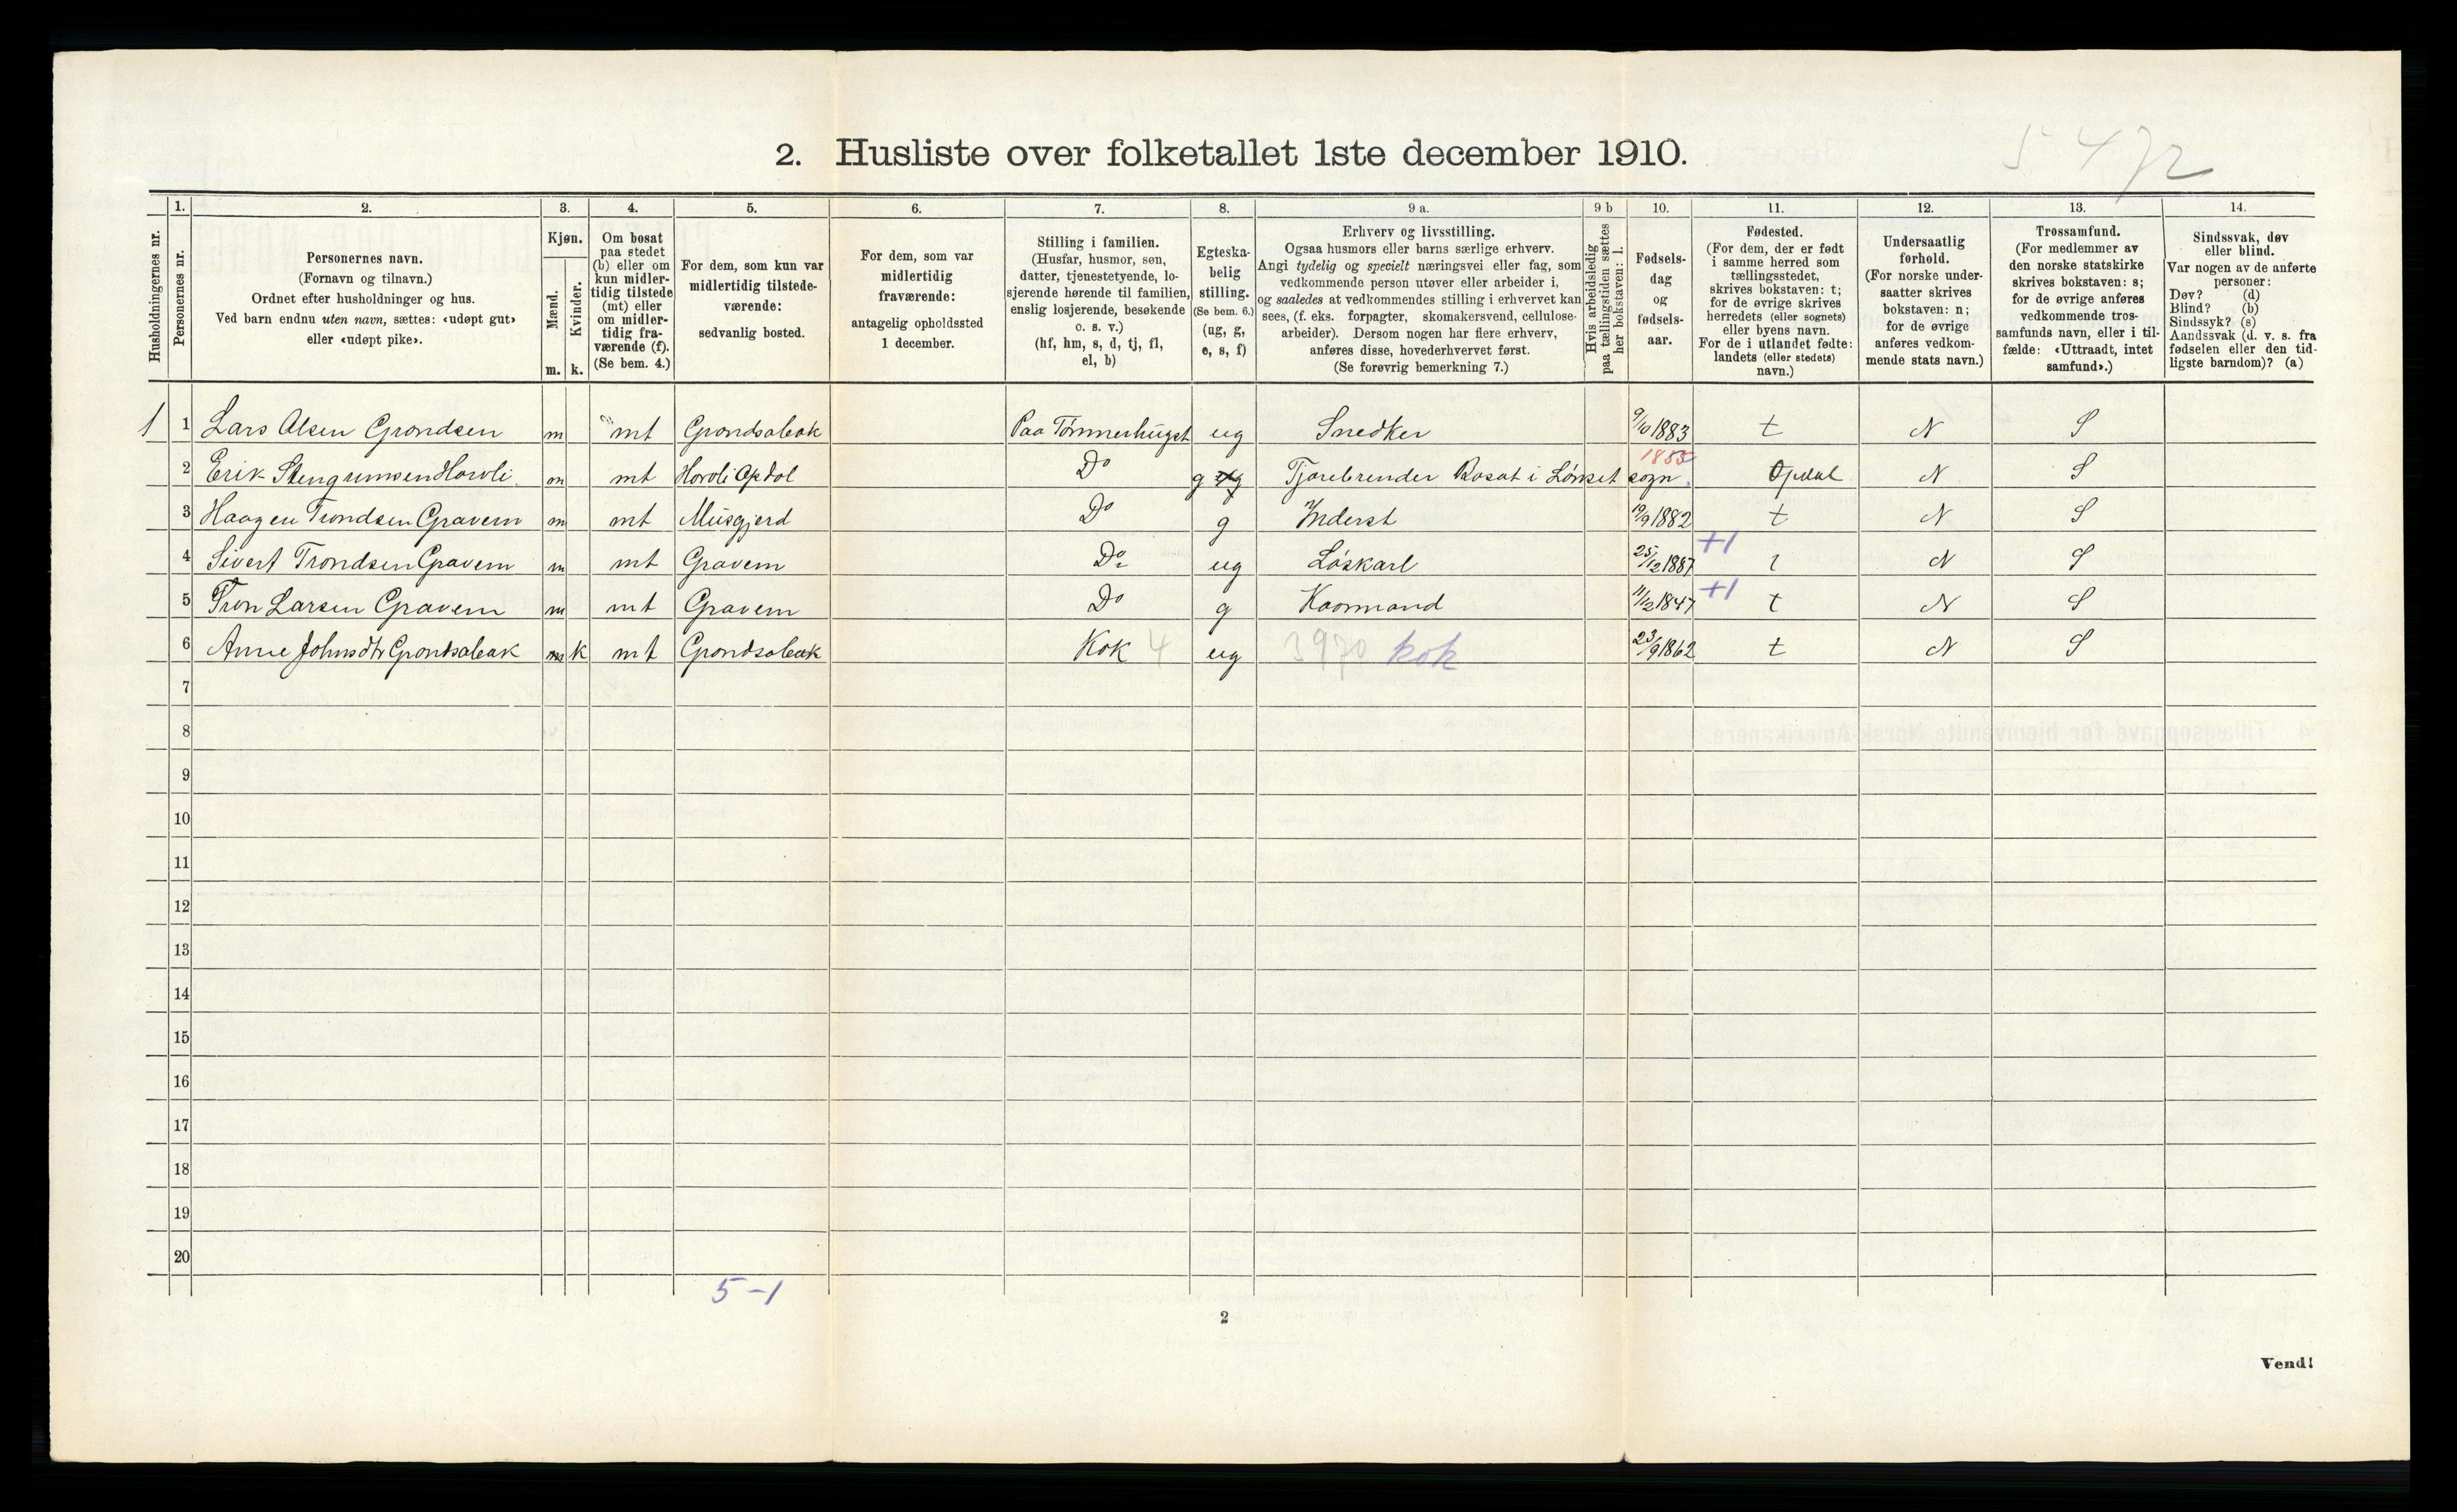 2. Husliste over folketallet 1ste december 1910.
5472
Husholdningernes nr.
1.
Personernes nr.
2.
Personernes navn.
(Fornavn og tilnavn.)
Ordnet efter husholdninger og hus.
Ved barn endnu uten navn, sættes: «udøpt gut»
eller «udøpt pike».
3.
Kjøn.
Mænd.
Kvinder.
m. k.
4.
Om bosat
paa stedet
(b) eller om
kun midler-
tidig tilstede
(mt) eller
om midler-
tidig fra-
værende (f).
(Se bem. 4.)
5.
For dem, som kun var
midlertidig tilstede-
værende:
sedvanlig bosted.
6.
For dem, som var
midlertidig
fraværende:
antagelig opholdssted
1 december.
7.
Stilling i familien.
(Husfar, husmor, søn,
datter, tjenestetyende, lo-
sjerende hørende til familien,
enslig losjerende, besøkende
o. s. v.)
(hf, hm, s, d, tj, fl,
el, b)
8.
Egteska-
belig
stilling.
(Se bem. 6.)
(ug, g,
e, s, f)
9 a.
Erhverv og livsstilling.
Ogsaa husmors eller barns særlige erhverv.
Angi tydelig og specielt næringsvei eller fag, som
vedkommende person utøver eller arbeider i,
og saaledes at vedkommendes stilling i erhvervet kan
sees, (f. eks. forpagter, skomakersvend, cellulose-
arbeider). Dersom nogen har flere erhverv,
anføres disse, hovederhvervet først.
(Se forøvrig bemerkning 7.)
9 b
Hvis arbeidsledig
paa tællingstiden sættes
her bokstaven: l.
10.
Fødsels-
dag
og
fødsels-
aar.
11.
Fødested.
(For dem, der er født
i samme herred som
tællingsstedet,
skrives bokstaven: t;
for de øvrige skrives
herredets (eller sognets)
eller byens navn.
For de i utlandet fødte:
landets (eller stedets)
navn.)
12.
Undersaatlig
forhold.
(For norske under-
saatter skrives
bokstaven: n;
for de øvrige
anføres vedkom-
mende stats navn.)
13.
Trossamfund.
(For medlemmer av
den norske statskirke
skrives bokstaven: s;
for de øvrige anføres
vedkommende tros-
samfunds navn, eller i til-
fælde: «Uttraadt, intet
samfund».)
14.
Sindssvak, døv
eller blind.
Var nogen av de anførte
personer:
Døv? (d)
Blind? (b)
Sindssyk? (s)
Aandssvak (d. v. s. fra
fødselen eller den tid-
ligste barndom)? (a)
1 1 Lars Olsen Grondsen m mt Grondsaleak Paa Tømmerhugst ug Snedker 9/10 1883 t N S
2 Erik Stengrimsen Horvli m mt Horvli Opdol Do g ug Tjærebrender Bosat i Lønset sogn. 1855 Opdal N S
3 Haagen Trondsen Gravem m mt Musgjerd Do g Inderst 19/9 1882 t N S
4 Sivert Trondsen Gravem m mt Gravem Do ug Løskarl 25/12 1887 +1 t N S
5 Tron Larsen Gravem m mt Gravem Do g Kaarmand 11/12 1847 +1 t N S
6 Anne Johnsdtr Grondsaleak m k mt Grondsaleak Kok 4 ug 3970 kok 23/9 1862 t N S
7
8
9
10
11
12
13
14
15
16
17
18
19
20
5-1
2
Vend!